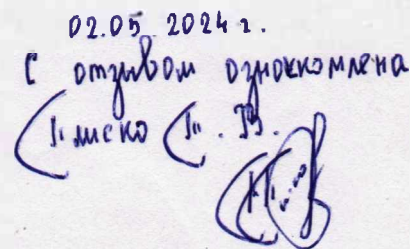 02.05 2024 г.
С отзывом ознакомлена